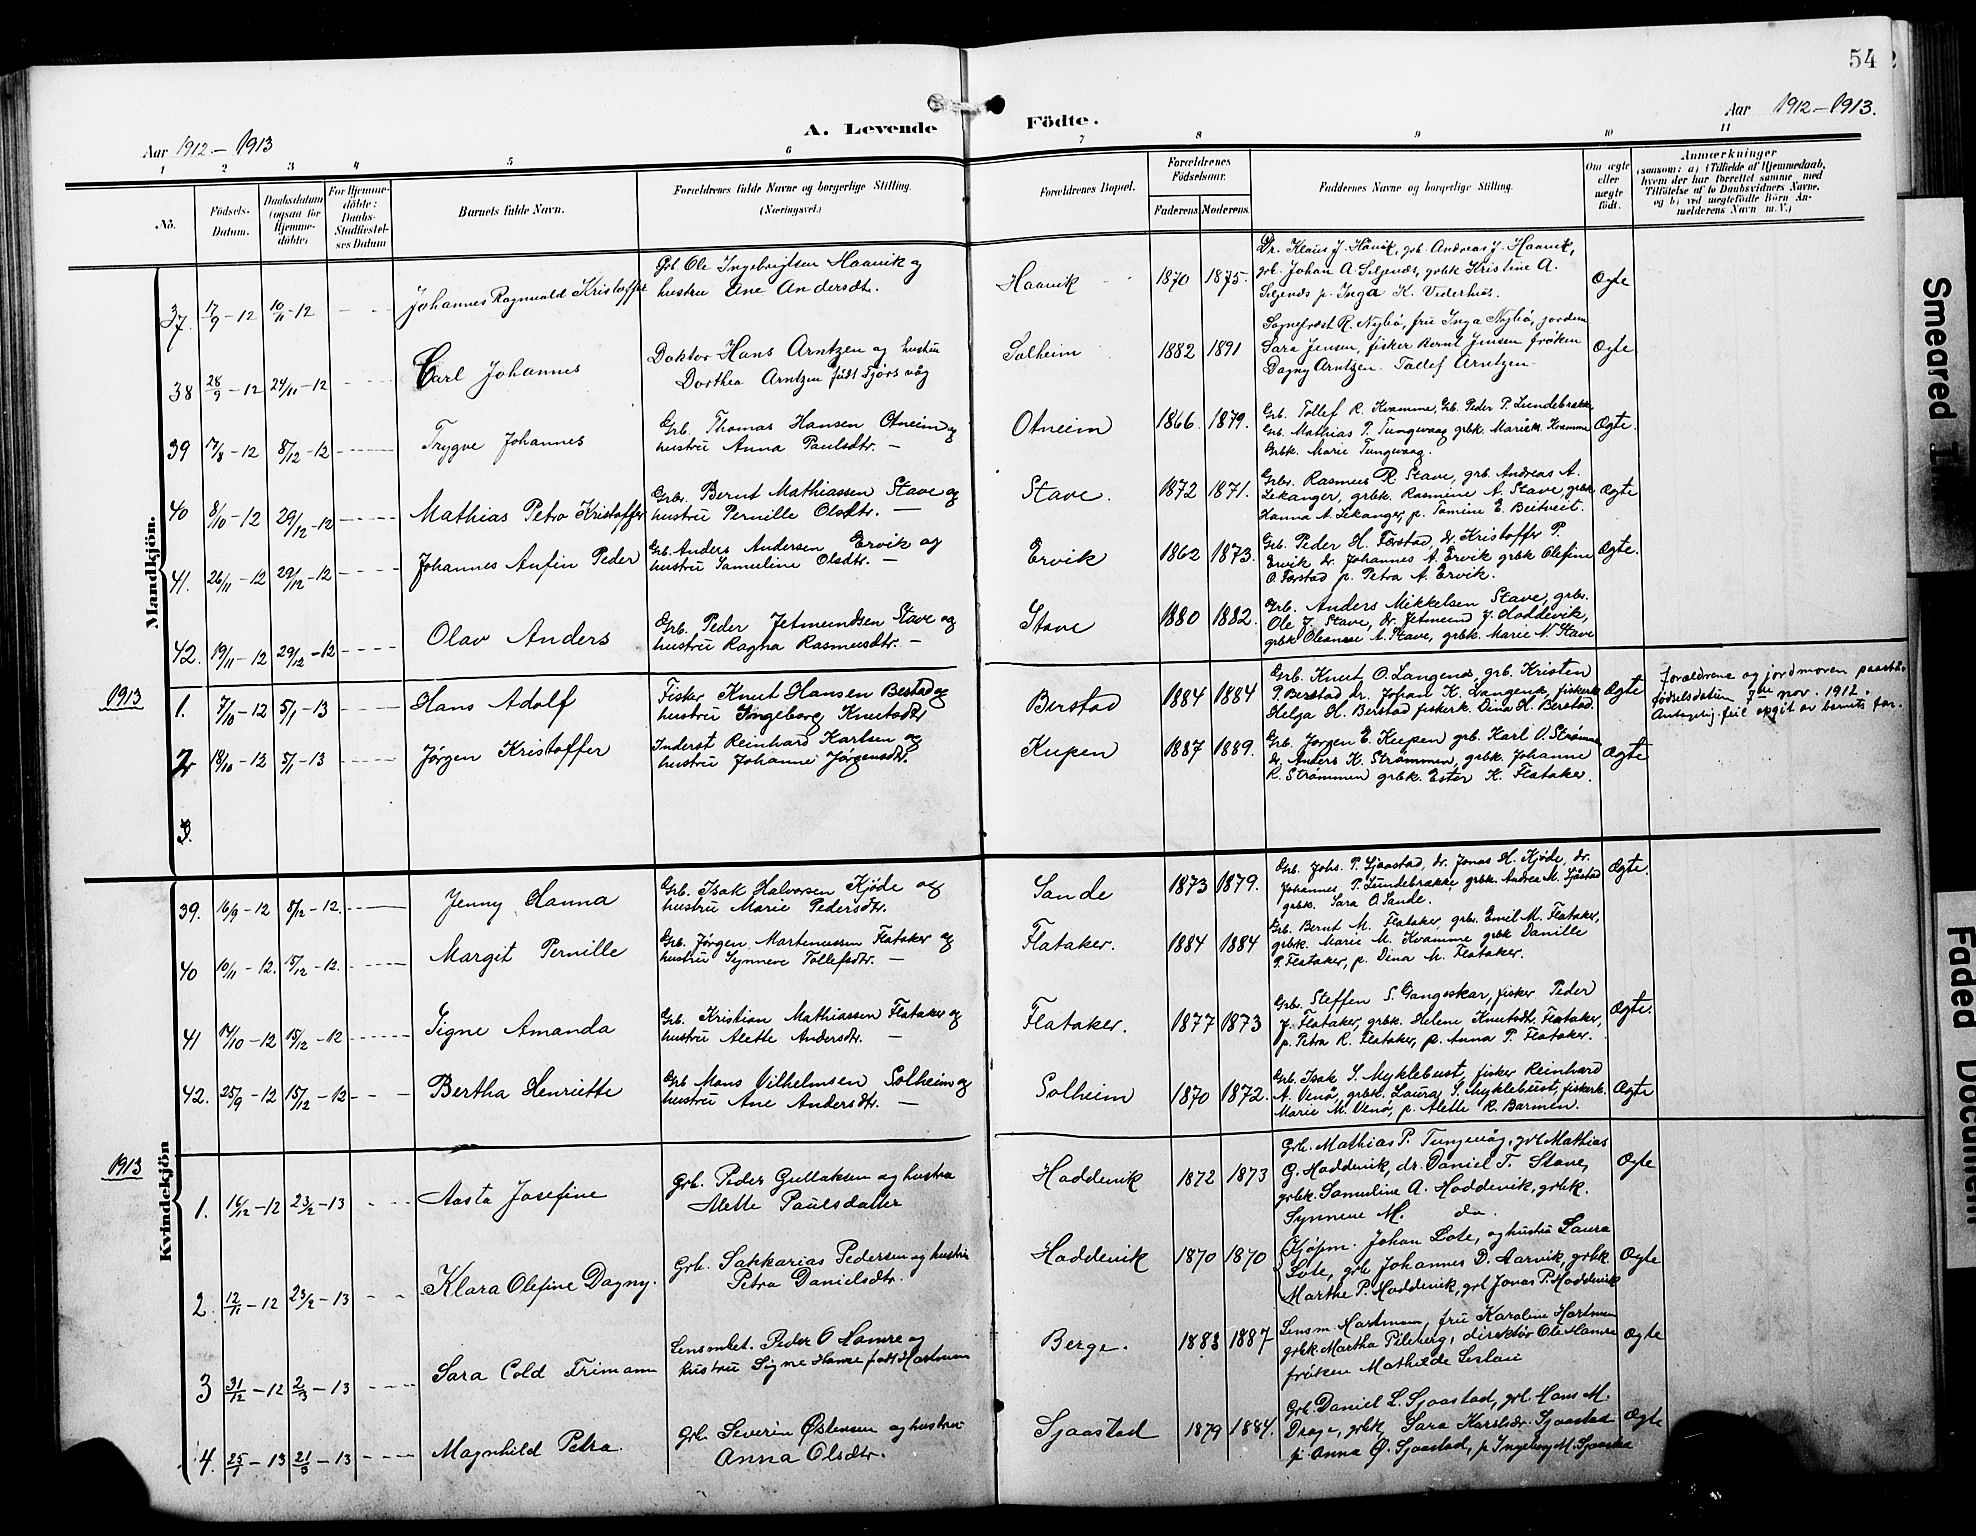 54
A. Levende Födte.
Aar 1912-1913
Aar 1912-1913.
1 2 3 4 5 6 7 8 9 10 11
No.
Födsels-Datum.
Daabsdatum (ogsaa for Hjemmedöbte)
For Hjemmedöbte: Daabs-Stadfæstelses Datum
Barnets fulde Navn.
Forældrenes fulde Navne og borgerlige Stilling. (Næringsvei.)
Forældrenes Bopæl.
Forældrenes Födselsaar. Faderens. Moderens.
Faddernes Navne og borgerlige Stilling.
Om ægte eller uægte födt.
Anmærkninger (saasom: a) i Tilfælde af Hjemmedaab, hvem der har forrettet samme med Tilföielse af to Daabsvidners Navne, og b) ved uægtefödte Börn Anmelderens Navn m. V.)
Mandkjön.
37. 17/9-12 10/11-12 Johannes Ragnvald Kristoffer
Grb Ole Ingebrigtsen Haavik og
hustru Ane Andersdt.
Haavik 1870 1875.
Dr. Klaus J. Håvik, grb. Andreas J. Haavik,
grb. Johan A. Seljenæs, grbk Kristine A.
Seljenæs p. Inga K. Vederhus.
Ægte
38 28/9-12 24/11-12 Carl Johannes
Doktor Hans Arntzen og hustru
Dorthea Arntzen født Fjørsvåg
Solheim 1882 1891
Sogneprest R. Nybø, fru Inga Nybø, jordem
Sara Jensen, fisker Bernt Jensen frøken
Dagny Arntzen. Tollef Arntzen
Ægte
39 17/8-12 8/12-12 Trygve Johannes
Grb. Thomas Hansen Otneim og
hustru Anna Paulsdtr. -
Otneim 1866 1879.
Grb. Tollef R. Kvamme, Grb. Peder P. Lundebrække
Grb. Mathias P. Tungevaag grbk. Marie M. Kvamme
Grbk. Marie Tungevaag.
Ægte.
40 8/10-12 29/12-12 Mathias Petro Kristoffer
Grbr. Bernt Mathiassen Stave og
hustru Pernille Olsdtr. -
Stave. 1872 1871.
Grbr. Rasmus R Stave, grb. Andreas A.
Lekanger, grbk. Rasmine A. Stave, grbk
Hanna A. Lekanger, p. Tomine E. Beitveit.
Ægte
41. 26/11-12 29/12-12 Johannes Anfin Peder
Grb. Anders Andersen Ervik og
hustru Samuline Olsdtr. -
Ervik 1862 1873.
Grb. Peder H. Færstad dr. Kristoffer P.
Ervik dr. Johannes A. Ervik grbk Olefine
O. Færstad p. Petra A. Ervik.
Ægte.
42. 19/11-12 29/12-12 Olav Anders
Grb. Peder Jetmundsen Stave og
hustru Ragna Rasmusdtr. -
Stave 1880 1882.
Grb. Anders Mikkelsen Stave, grbr.
Ole J. Stave, dr. Jetmund J. Hoddevik,
grbk Oleanne A. Stave, grbk. Marie N. Stave
1913
1. 7/10-12 5/1-13 Hans Adolf
Fisker Knut Hansen Berstad og
hustru Ingeborg Knutsdtr
Berstad 1884 1884
Grb. Knut O. Langenæs, grb. Kristen
P. Berstad dr. Johan K. Langenæs, fiskerk
Helga H. Berstad fiskerk. Dina H. Berstad.
Ægte
Forældrene og jordmoren paastår
fødselsdatien 7de nov. 1912.
Antagelig feil opgit av barnets far.
2 18/10-12 5/1-13 Jørgen Kristoffer
Inderst Reinhard Karlsen og
hustru Johanne Jørgensdtr.
Kupen 1887 1889.
Grb. Jørgen E. Kupen grb. Karl O. Strømmen
dr. Anders K. Strømmen, grbk. Johanne
R. Strømmen grbk. Ester K. Flataker.
Ægte
3.
Kvindekjön
39. 16/9-12 8/12-12. Jenny Hanna
Grb. Isak Halvorsen Kjøde og
hustru Marie Pedersdtr.
Sande 1873 1879.
Grb. Johs. P. Sjaastad, dr. Jonas H. Kjøde, dr.
Johannes P. Lundebrække grbk. Andrea M. Sjåstad
grbk. Sara O. Sande.
Ægte.
40 10/11-12. 15/12-12. Margit Pernille
Grb. Jørgen Martinussen Flataker og
hustru Synneve Tollefsdtr. -
Flataker. 1884 1884
Grb. Bernt M. Flataker, grbr. Emil M. Flataker,
grbk. Marie M. Kvamme grbk Danille
P. Flataker, p. Dina M. Flataker.
41 17/10-12 15/12-12 Signe Amanda
Grb. Kristian Mathiassen Flataker og
hustru Alette Andersdtr. -
Flataker. 1877 1873
Grb. Steffen S. Gangeskar, fisker Peder
J. Flataker, grbk. Helene Knutsdtr. Flataker,
p. Petra R. Flataker, p. Anna P. Flataker.
Ægte.
42. 25/9-12 15/12-12 Bertha Henriette
Grb Mons Vilhelmsen Solheim og
hustru Ane Andersdtr. -
Solheim 1870 1872.
Grb. Isak S. Myklebust, fisker Reinhard
A. Venø, grbk. Laura S. Myklebust, fiskerk.
Marie M. Venø, p. Alette R. Barmen.
Ægte
1913
1. 16/12-12 23/2-13 Aasta Josefine
Grb. Peder Gullaksen og hustru
Alette Paulsdatter
Hoddevik 1872 1873
Grb. Mathias P. Tungevåg, grb Mathias
G. Hoddevik, dr. Daniel T. Stave,
grbk. Samuline A. Hoddevik, grbk.
Synneve M. do.
Ægte
2. 12/11-12 23/2-13 Klara Olefine Dagny.
Grb. Sakkarias Pedersen og hustru
Petra Danielsdtr.
Hoddevik 1870 1870
Kjøpm. Johan Lote, og hustru Laura
Lote, grb Johannes D. Aarvik, grbk.
Marthe P. Hoddevik, grb Jonas P. Hoddevik
Ægte
3 31/12-12 2/3-13 Sara Cold Frimann
Lensmbet. Peder O Hamre og
hustru Signe Hamre født Hartman
Berge. 1883 1887
Lensm. Hartman, fru Karoline Hartman
grbk. Martha Pileberg, direktør Ole Hamre
frøken Mathilde
Ægte
4. 25/1-13 21/3-13 Magnhild Petra.
Grb. Severin Østensen og hustru
Anna Olsdtr.
Sjaastad 1879 1884.
Grb. Daniel L. Sjaastad, grb. Hans M.
Drage, grbk Sara Karlsdr. Sjaastad
pi Anna Ø. Sjaastad, p. Ingeborg M. Sjaastad
Ægte
Smeared
Faded Document